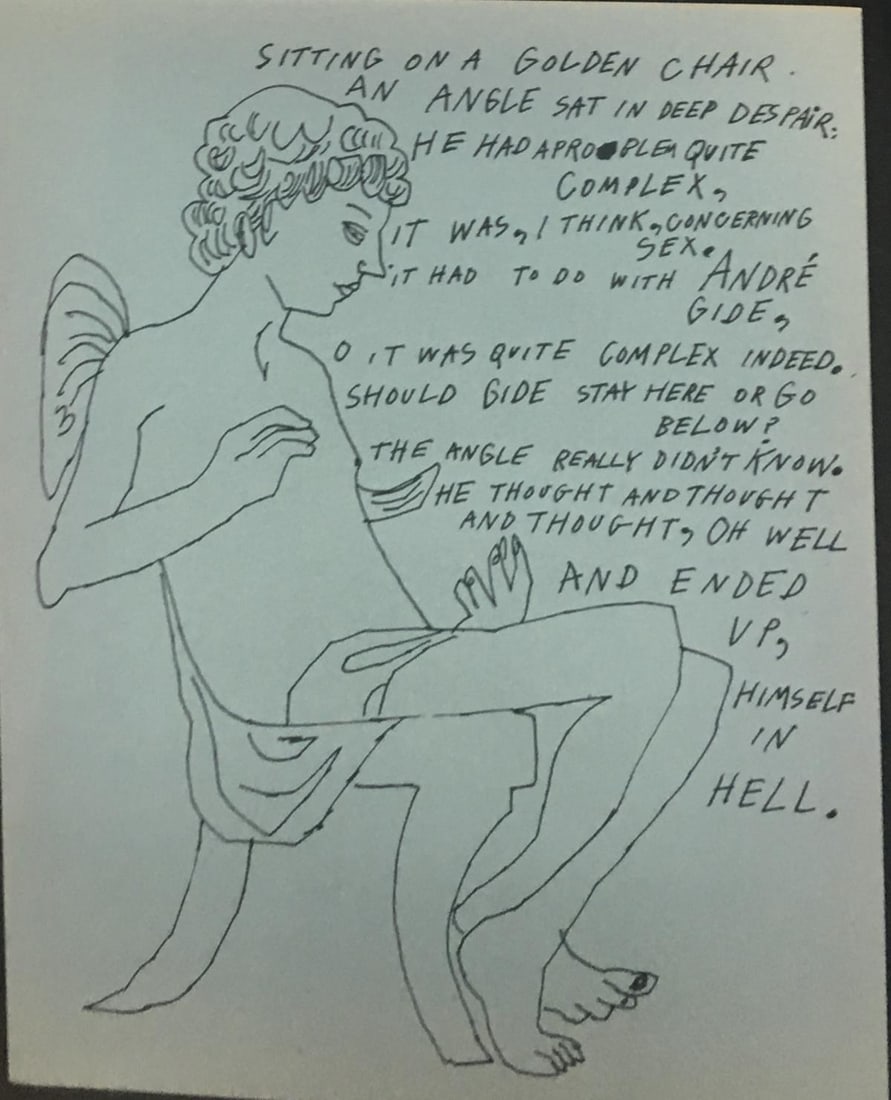 SITTING ON A GOLDEN CHAIR.
AN ANGLE SAT IN DEEP DESPAIR.
HE HAD A PROBLEM QUITE
COMPLEX,
IT WAS, I THINK, CONCERNING
SEX.
IT HAD TO DO WITH ANDRÉ
GIDE,
O IT WAS QUITE COMPLEX INDEED.
SHOULD GIDE STAY HERE OR GO
BELOW?
THE ANGLE REALLY DIDN'T KNOW.
HE THOUGHT AND THOUGHT
AND THOUGHT, OH WELL
AND ENDED
UP,
HIMSELF
IN
HELL.